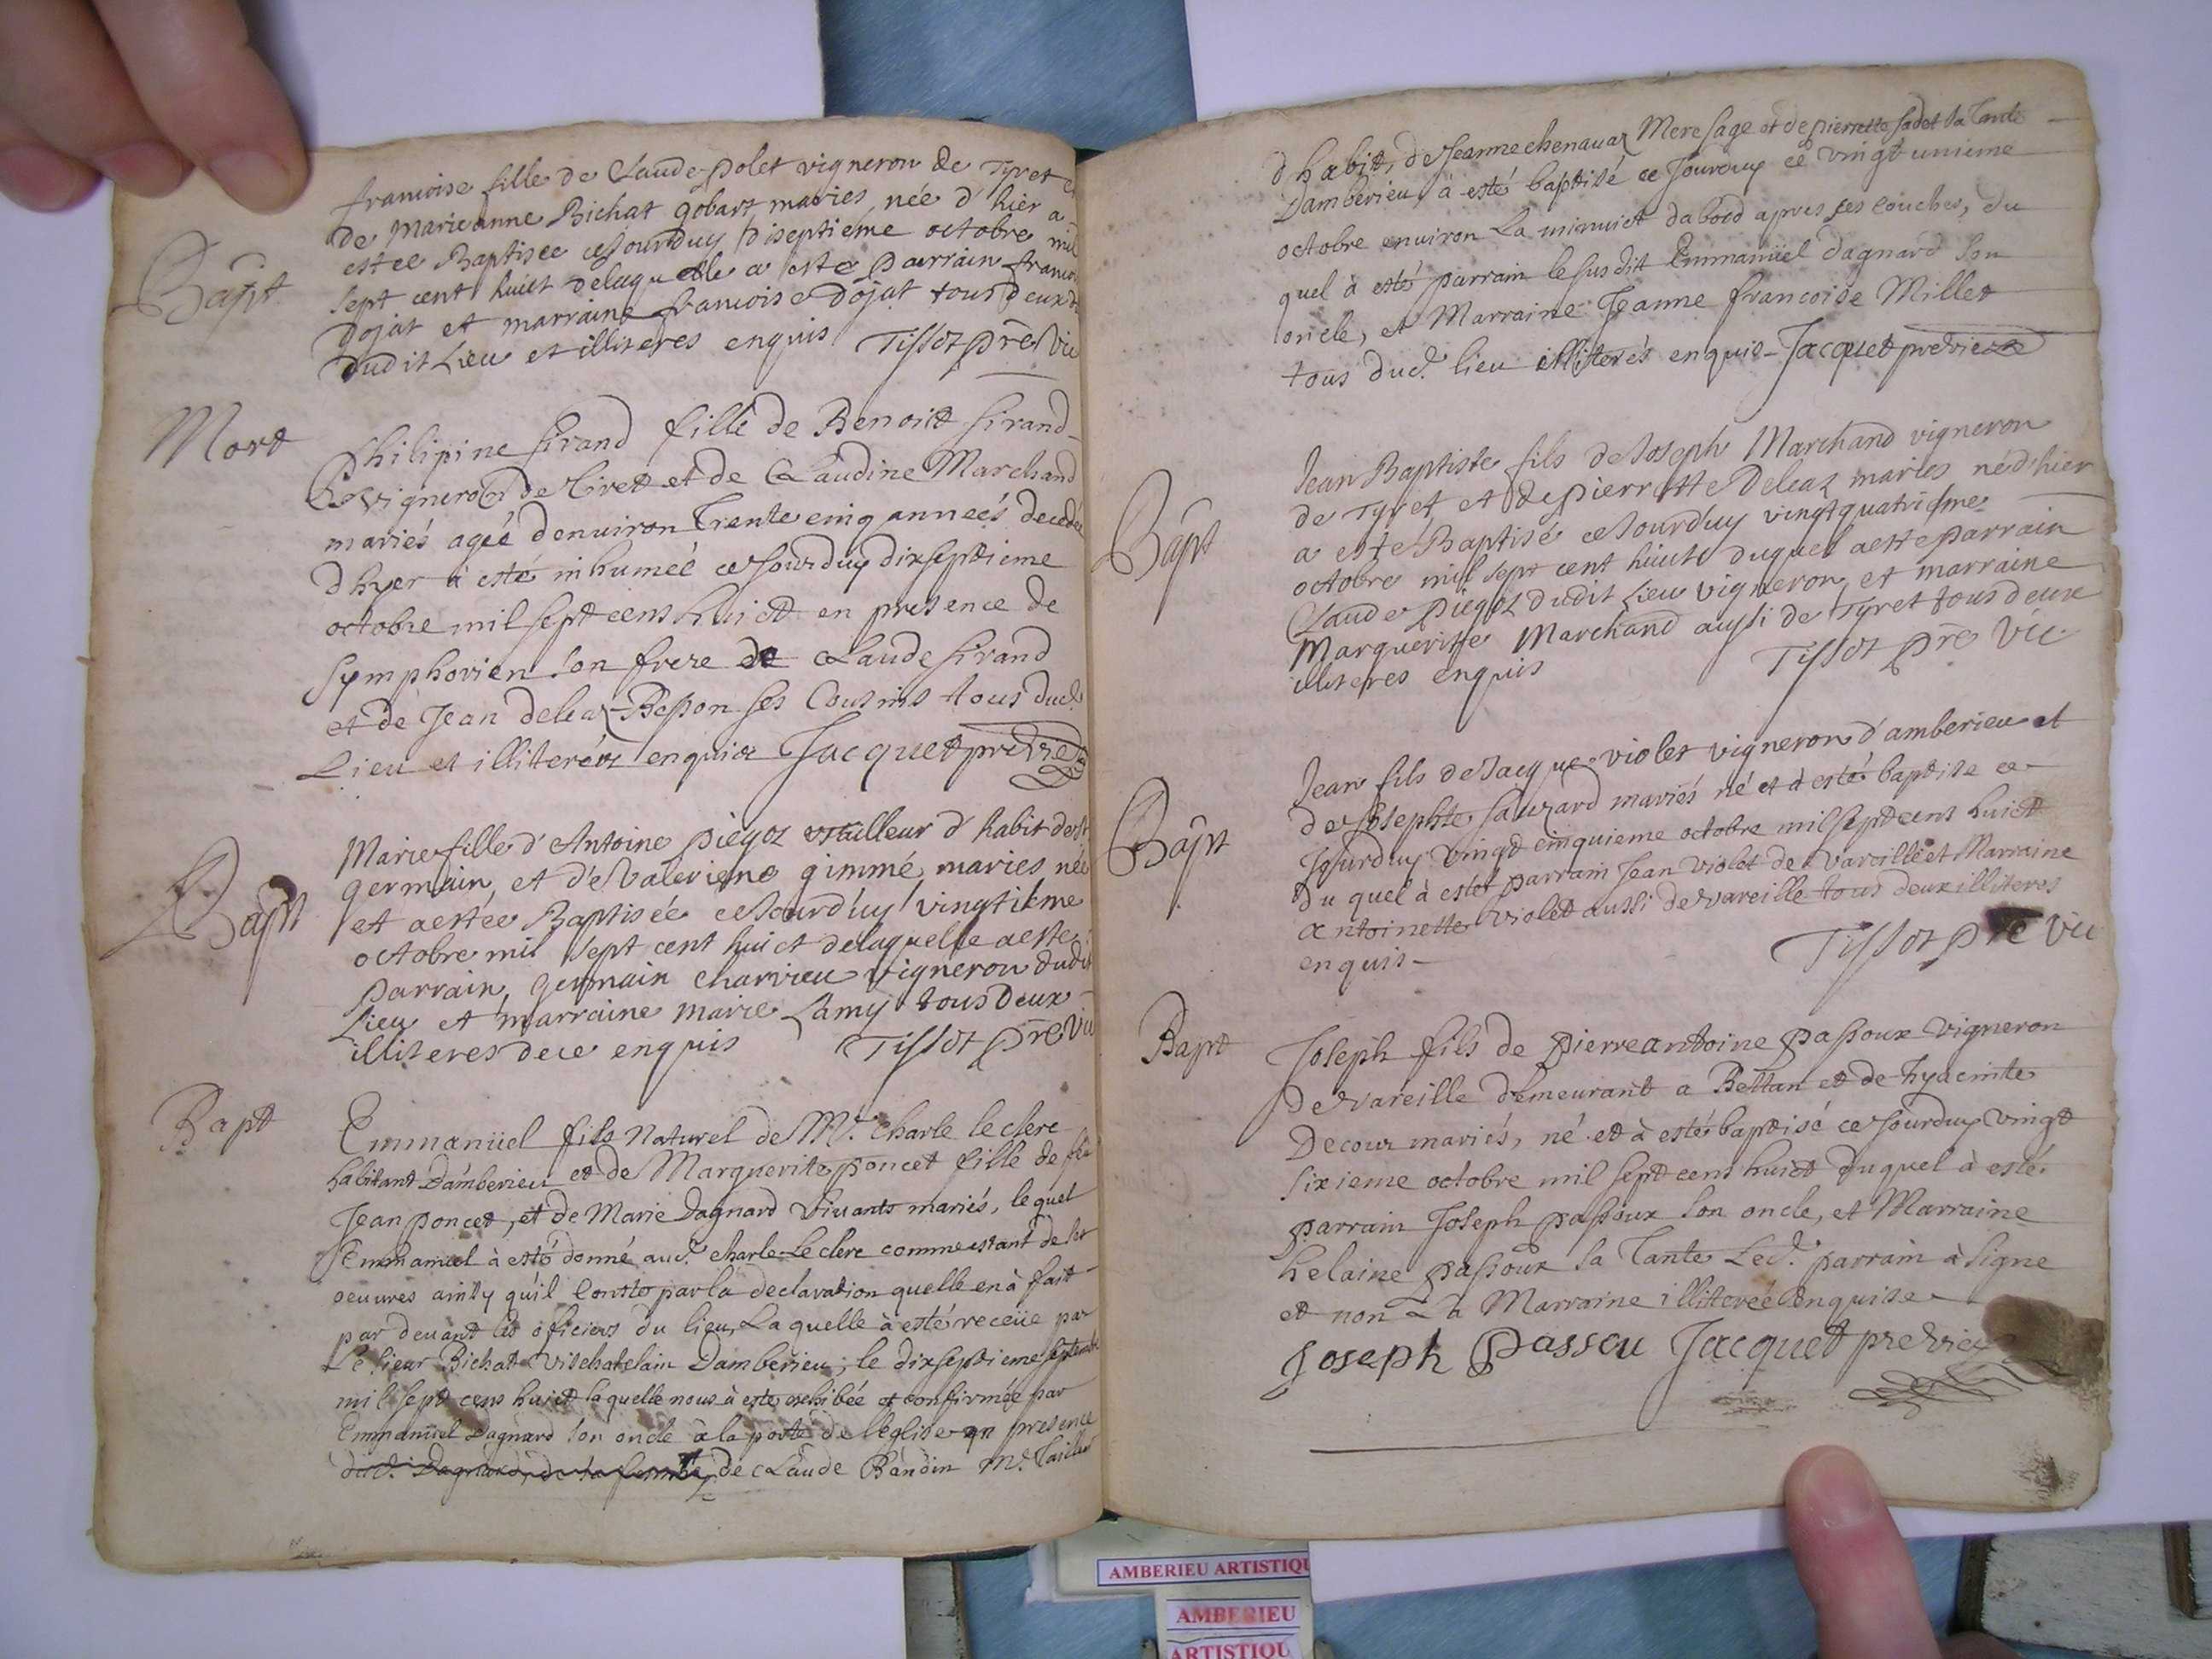 francoise fille de Claude polet vigneron de Tyret et
de Marieanne Bichat gobart maries, née d'hier a
Bapt
estée Baptisee ceJourduy diseptiéme octobre mil
sept cent huict delaquelle a esté parrain francois
Dojat et marraine francoise Dojat tous deux
dudit Lieu et illiteres enquis Tissot pre Vic
Mort
Philipine Sirand fille de Benoict Sirand
vigneron de Tiret et de Claudine Marchand
mariés ageé denuiron Trente cinq anneés decedée
dhyer à esté inhumeé ceJourduy dixseptieme
octobre mil sept cens huict en presence de
Symphorien Son frere de Claude Sirand
et de Jean deleaz-Besson ses Cousins tous dud.
Lieu et illiterés enquis Jacquet pre Vic
Bapt
Marie fille d'Antoine piegoz tailleur d'habit de St
germain, et de Valeriene gimmé maries née
et aestée Baptisée ceJourd'uy vingtième
octobre mil sept cent huict delaquelle aeste
parrain germain charvieu vigneron dudit
Lieu et marraine marie Lamy tous Deux
illiteres dece enquis Tissot pre Vic
Bapt
Emmanüel fils Naturel de Mr. Charle le clerc
habitant Damberieu et de Marguerite poncet fille de feu
Jean poncet, et de Marie Dagnard vivants mariés, lequel
Emmanuel à esté donné aud. Charle Le clerc comme estant de ses
oeuures ainsy qu'il Conste par la declaration quelle en à fait
par deuant les oficiers du lieu, Laquelle à esté receüe par
Le Sieur Bichat vischatelain Damberieu, le dixseptieme septembre
mil sept cens huict laquelle nous à esté exhibée et confirmée par
Emmanüel Dagnard son oncle à la porte de l'eglise en presence
dud. Dagnard, de sa femme, de Claude Bandin Me. Tailleur
dhabits, de Jeanne chenavaz Mere sage et de pierrette Sadet sa Tante
Damberieu, à esté baptisé ce Jourduy ce vingt unieme
octobre enuiron La minuict dabord apres ses couches, du
quel à esté parrain le susdit Emmanüel Dagnard son
oncle, et Marraine Jeanne francoise Millet
tous dud. lieu illiterés enquis - Jacquet pre Vic
Bapt
Jean Baptiste fils de Joseph Marchand vigneron
de Tyret et de pierrette Deleaz maries né d'hier
a esté Baptisé ceJourd'uy vingtquatriesme
octobre mil sept cent huict duquel aesté parrain
Claude piegoz dudit Lieu vigneron, et marraine
Marguerite Marchand aussi de Tyret tous deux
illiteres enquis Tissot pre Vic
Bapt
Jean fils de Jacque violet vigneron d'amberieu et
de Josephte Sauzard mariés né et à esté baptise ce
Jourduy vingt cinquieme octobre mil sept cens huict
du quel à esté parrain Jean violet de vareille et Marraine
antoinette violet aussi de vareille tous deux illiteres
enquis - Tissot pre Vic
Bapt
Joseph fils de pierre antoine passoux vigneron
de vareille demeurant a Bettan et de hyacinte
Decour mariés, né et à esté baptisé ce Jourduy vingt
sixieme octobre mil sept cens huict duquel à esté
parrain Joseph passoux son oncle, et Marraine
helaine passoux sa Tante Led. parrain à signe
et non La Marraine illiterée enquise
Joseph passou Jacquet pre Vic
AMBERIEU ARTISTIQU
AMBERIEU
ARTISTIQU